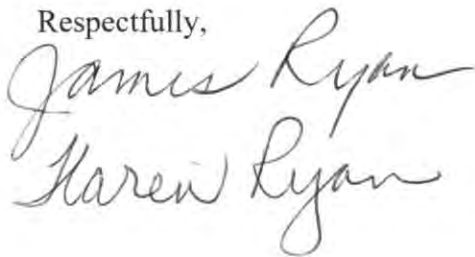 Respectfully,
James Ryan
Karen Ryan